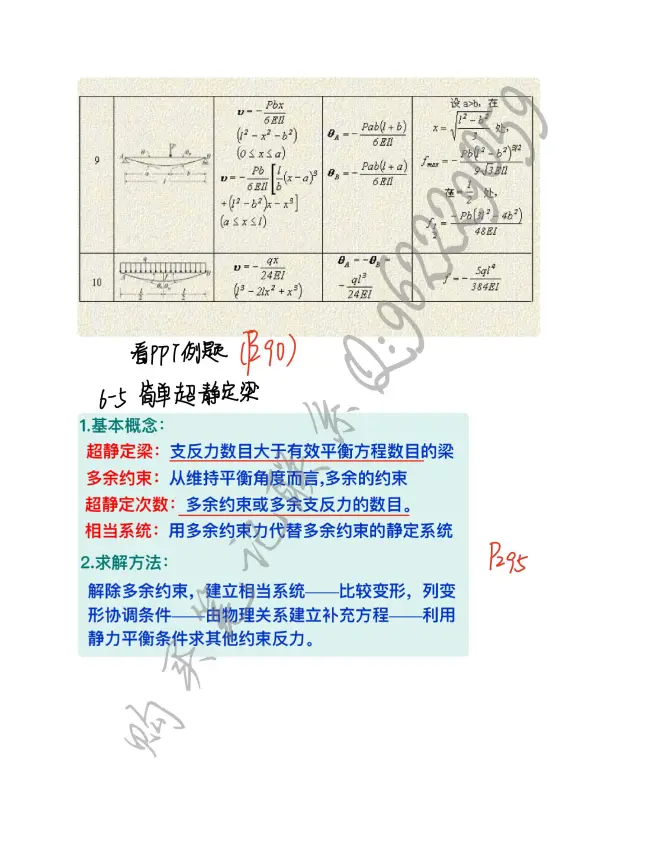 9
υ = − Pbx / 6EIl
(l² − x² − b²)
(0 ≤ x ≤ a)
υ = − Pb / 6EIl [ l/b (x − a)³
+ (l² − b²)x − x³ ]
(a ≤ x ≤ l)
θ_A = − Pab(l + b) / 6EIl
θ_B = − Pab(l + a) / 6EIl
设 a>b, 在
x = √((l² − b²) / 3) 处,
f_max = − Pb(l² − b²)^{3/2} / 9√3EIl
在 = l/2 处,
f_{l/2} = − Pb(3l² − 4b²) / 48EI
10
υ = − qx / 24EI
(l³ − 2lx² + x³)
θ_A = −θ_B =
− ql³ / 24EI
f = − 5ql⁴ / 384EI
看PPT例题 (P290)
6-5 简单超静定梁
1.基本概念:
超静定梁: 支反力数目大于有效平衡方程数目的梁
多余约束: 从维持平衡角度而言,多余的约束
超静定次数: 多余约束或多余支反力的数目。
相当系统: 用多余约束力代替多余约束的静定系统
2.求解方法:
解除多余约束, 建立相当系统——比较变形, 列变
形协调条件——由物理关系建立补充方程——利用
静力平衡条件求其他约束反力。
P295
购买笔记联系Q:962229959